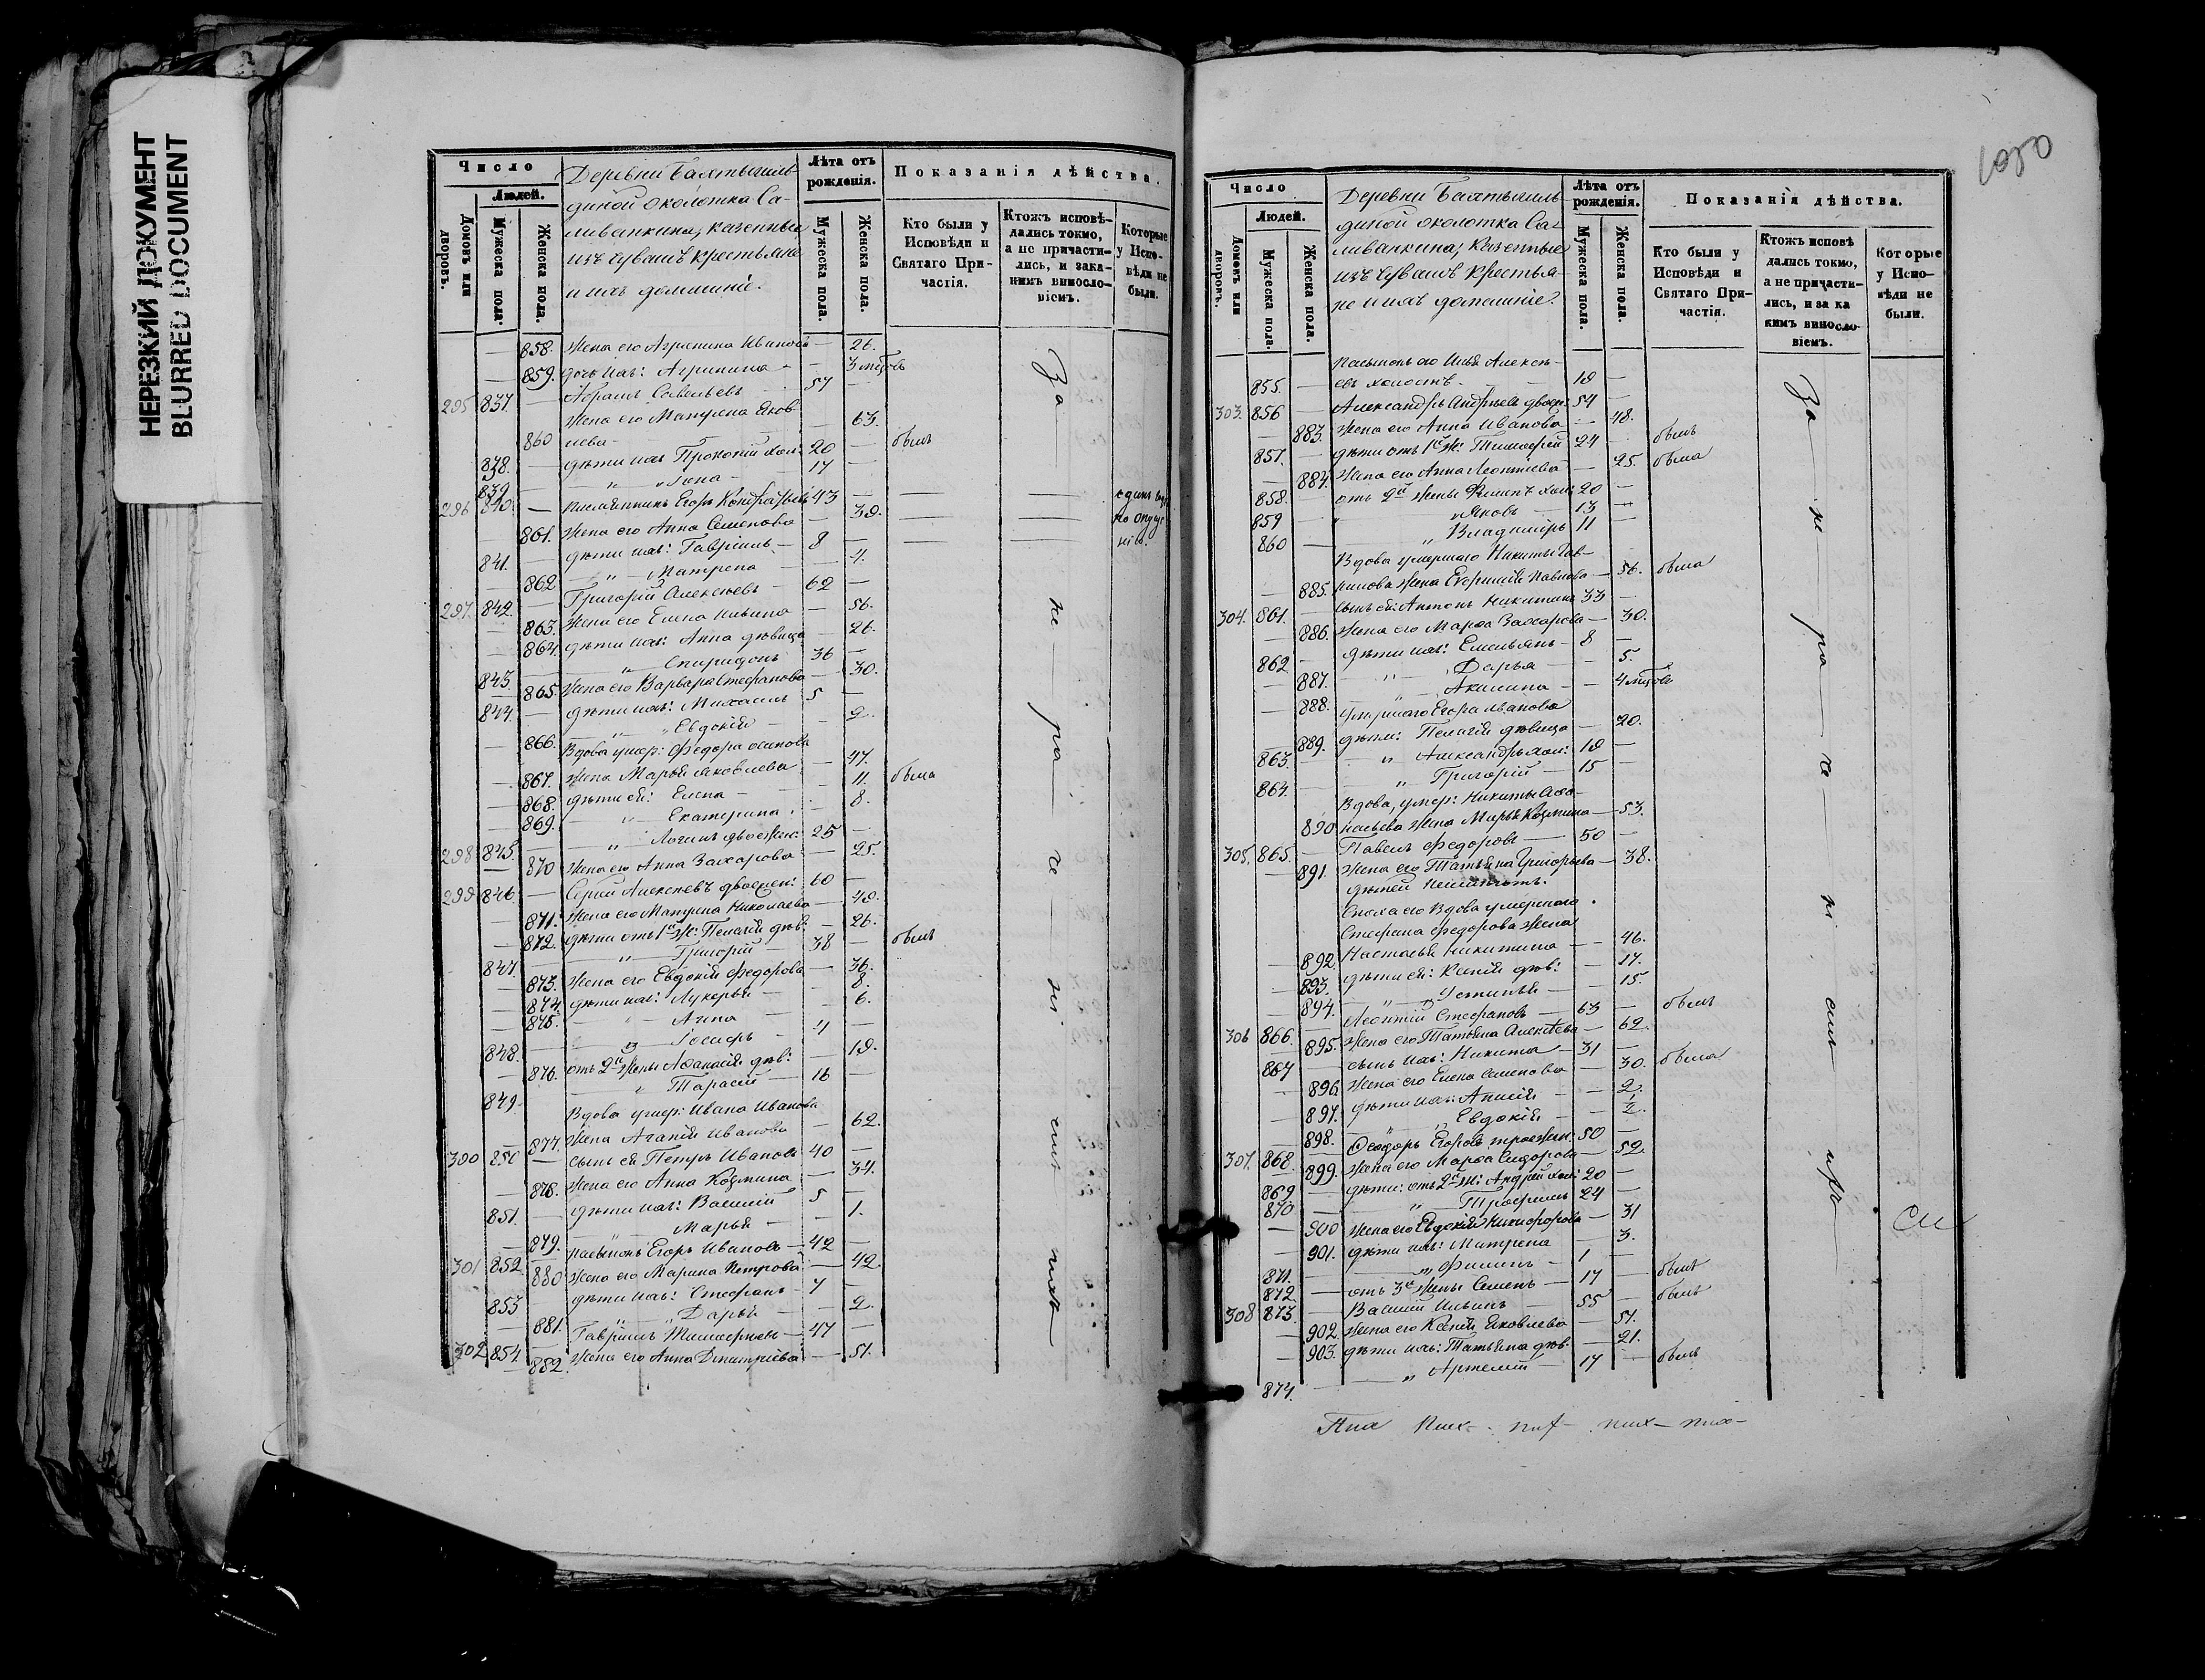 НЕРЕЗКИЙ ДОКУМЕНТ
BLURRED DOCUMENT
Число
Людей.
Домовъ или дворовъ.
Мужеска пола.
Женска пола.
Деревни Бахтыгиль-
диной околотка Са-
ливанкина, казенные
изъ чувашъ крестьяне
и ихъ домашніе.
Лѣта отъ рожденія.
Мужеска пола.
Женска пола.
Показанія дѣйства.
Кто были у Исповѣди и Святаго Причастія.
Ктожъ исповѣдались токмо, а не причастились, и за какимъ винословіемъ.
Которые у Исповѣди не были.
— 858. Жена его Агрипина Иванова — 26.
— 859. дочь ихъ: Агрипина — 3 мѣсѣ
295 837. — Абрамъ Савельевъ 57
Жена его Матрена Яков-
860 лева — 63.
838. — дѣти ихъ Прокопій хол: 20 — былъ
839 — „ Іона — 17 —
296 840. — племянникъ Егоръ Кондратьевъ 43 —
— 861. Жена его Анна Семенова — 39.
841. — дѣти ихъ: Гавріилъ — 8 —
— 862. „ Матрена — 4.
297. 842. — Григорій Алексѣевъ — 62 —
— 863. Жена его Елена Ильина — 56.
— 864. дѣти ихъ: Анна дѣвица — 26.
843. — „ Спиридонъ 36 —
— 865. Жена его Варвара Стефанова — 30.
844. — дѣти ихъ: Михаилъ 5 —
— 866. „ Евдокія — 2.
Вдова умер: Федора Осипова
— 867. Жена Марья Яковлева — 47.
— 868. дѣти ея: Елена — 11. была
— 869. „ Екатерина — 8.
298 845. — „ Логинъ двоежен: 25 —
— 870 Жена его Анна Захарова — 25.
299 846. — Сергій Алексѣевъ двоежен: 60 —
— 871. Жена его Матрена Николаева — 49.
— 872. дѣти отъ 1й Ж: Пелагія дѣв: — 26.
847. — „ Григорій — 38 — былъ
— 873. Жена его Евдокія Федорова — 36.
— 874. дѣти ихъ: Лукерья — 8.
— 875. „ Анна — 6.
848. — „ Іосифъ — 4 —
— 876. отъ 2й Жены Афанасія дѣв: — 19.
849. — „ Тарасій — 16 —
Вдова умер: Ивана Иванова
— 877. Жена Агапія Иванова — 62.
300 850 — сынъ ея Петръ Ивановъ 40 —
— 878. Жена его Анна Козмина — 34.
851. — дѣти ихъ: Василій 5 —
— 879. „ Марья — 1.
301 852 — пасынокъ Егоръ Ивановъ — 42 —
— 880 Жена его Марина Петрова — 42.
853 — дѣти ихъ: Стефанъ — 7 —
— 881. „ Дарья — 2.
302 854. — Гавріилъ Тимофеевъ — 47 —
— 882. Жена его Анна Дмитріева — 51.
За не ра че ні емъ ихъ
1050
Число
Людей.
Домовъ или дворовъ.
Мужеска пола.
Женска пола.
Деревни Бахтыгиль-
диной околотка Са-
ливанкина, Казенные
изъ чувашъ крестья-
не и ихъ домашніе.
Лѣта отъ рожденія.
Мужеска пола.
Женска пола.
Показанія дѣйства.
Кто были у Исповѣди и Святаго Причастія.
Ктожъ исповѣдались токмо, а не причастились, и за какимъ винословіемъ.
Которые у Исповѣди не были.
Пасынокъ его Илья Алексѣ-
855. — евъ холостъ. 19 —
303. 856 — Александръ Андреевъ двоеж: 54 —
— 883. Жена его Анна Иванова — 48.
857. — дѣти отъ 1й Ж: Тимофей 24 — былъ
— 884. Жена его Анна Леонтіева — 25. была
858. — отъ 2й Жены Филипъ хол: 20 —
859 — „ Яковъ — 13 —
860 — „ Владиміръ 11 —
Вдова умершаго Никиты Гав-
— 885. рилова жена Евфимія Павлова — 56. была
304. 861. — сынъ ея: Антонъ Никитинъ 33 —
— 886. Жена его Марѳа Захарова — 30.
862 — дѣти ихъ: Емельянъ — 8
— 887. „ Дарья — 5.
— 888. „ Акилина — 4 мѣсѣ
умершаго Егора Иванова
— 889. дѣти: Пелагія дѣвица — 20.
863. — „ Александръ хол: 19 —
864. — „ Григорій — 15 —
Вдова, умер: Никиты Аѳа-
890 насьева жена Марья Козмина — 53.
305. 865. — Павелъ Федоровъ — 50 —
— 891. Жена его Татьяна Григорьева — 38.
дѣтей неимѣютъ.
Сноха его Вдова умершаго
Стефана Федорова жена
— 892. Настасья Никитина — 46.
— 893. дѣти ея: Ксенія дѣв: — 17.
— 894. „ Устинья — 15.
306 866. — Леонтій Стефановъ — 63 — былъ
— 895. Жена его Татьяна Алексѣева — 62.
867 — сынъ ихъ: Никита — 31 —
— 896 Жена его Елена Семенова — 30. была
— 897. дѣти ихъ: Анисія — 2.
— 898. „ Евдокія — ½.
307. 868. — Ѳеодоръ Егоровъ троежен: 50 —
— 899. Жена его Марѳа Сидорова — 52.
869 — дѣти: отъ 2й Ж: Андрей хол: 20 —
870 — „ Трофимъ 24 —
— 900 Жена его Евдокія Никифорова — 31
— 901. дѣти ихъ: Матрена — 3.
871. — „ Филипъ — 1 —
872. — отъ 3й Жены Семенъ — 17 — былъ
308 873. — Василій Ильинъ 55 — былъ
— 902. Жена его Ксенія Яковлева — 51.
— 903. дѣти ихъ: Татьяна дѣв. — 21.
874. — „ Артемій — 17 — былъ
За не ра че ні емъ ихъ